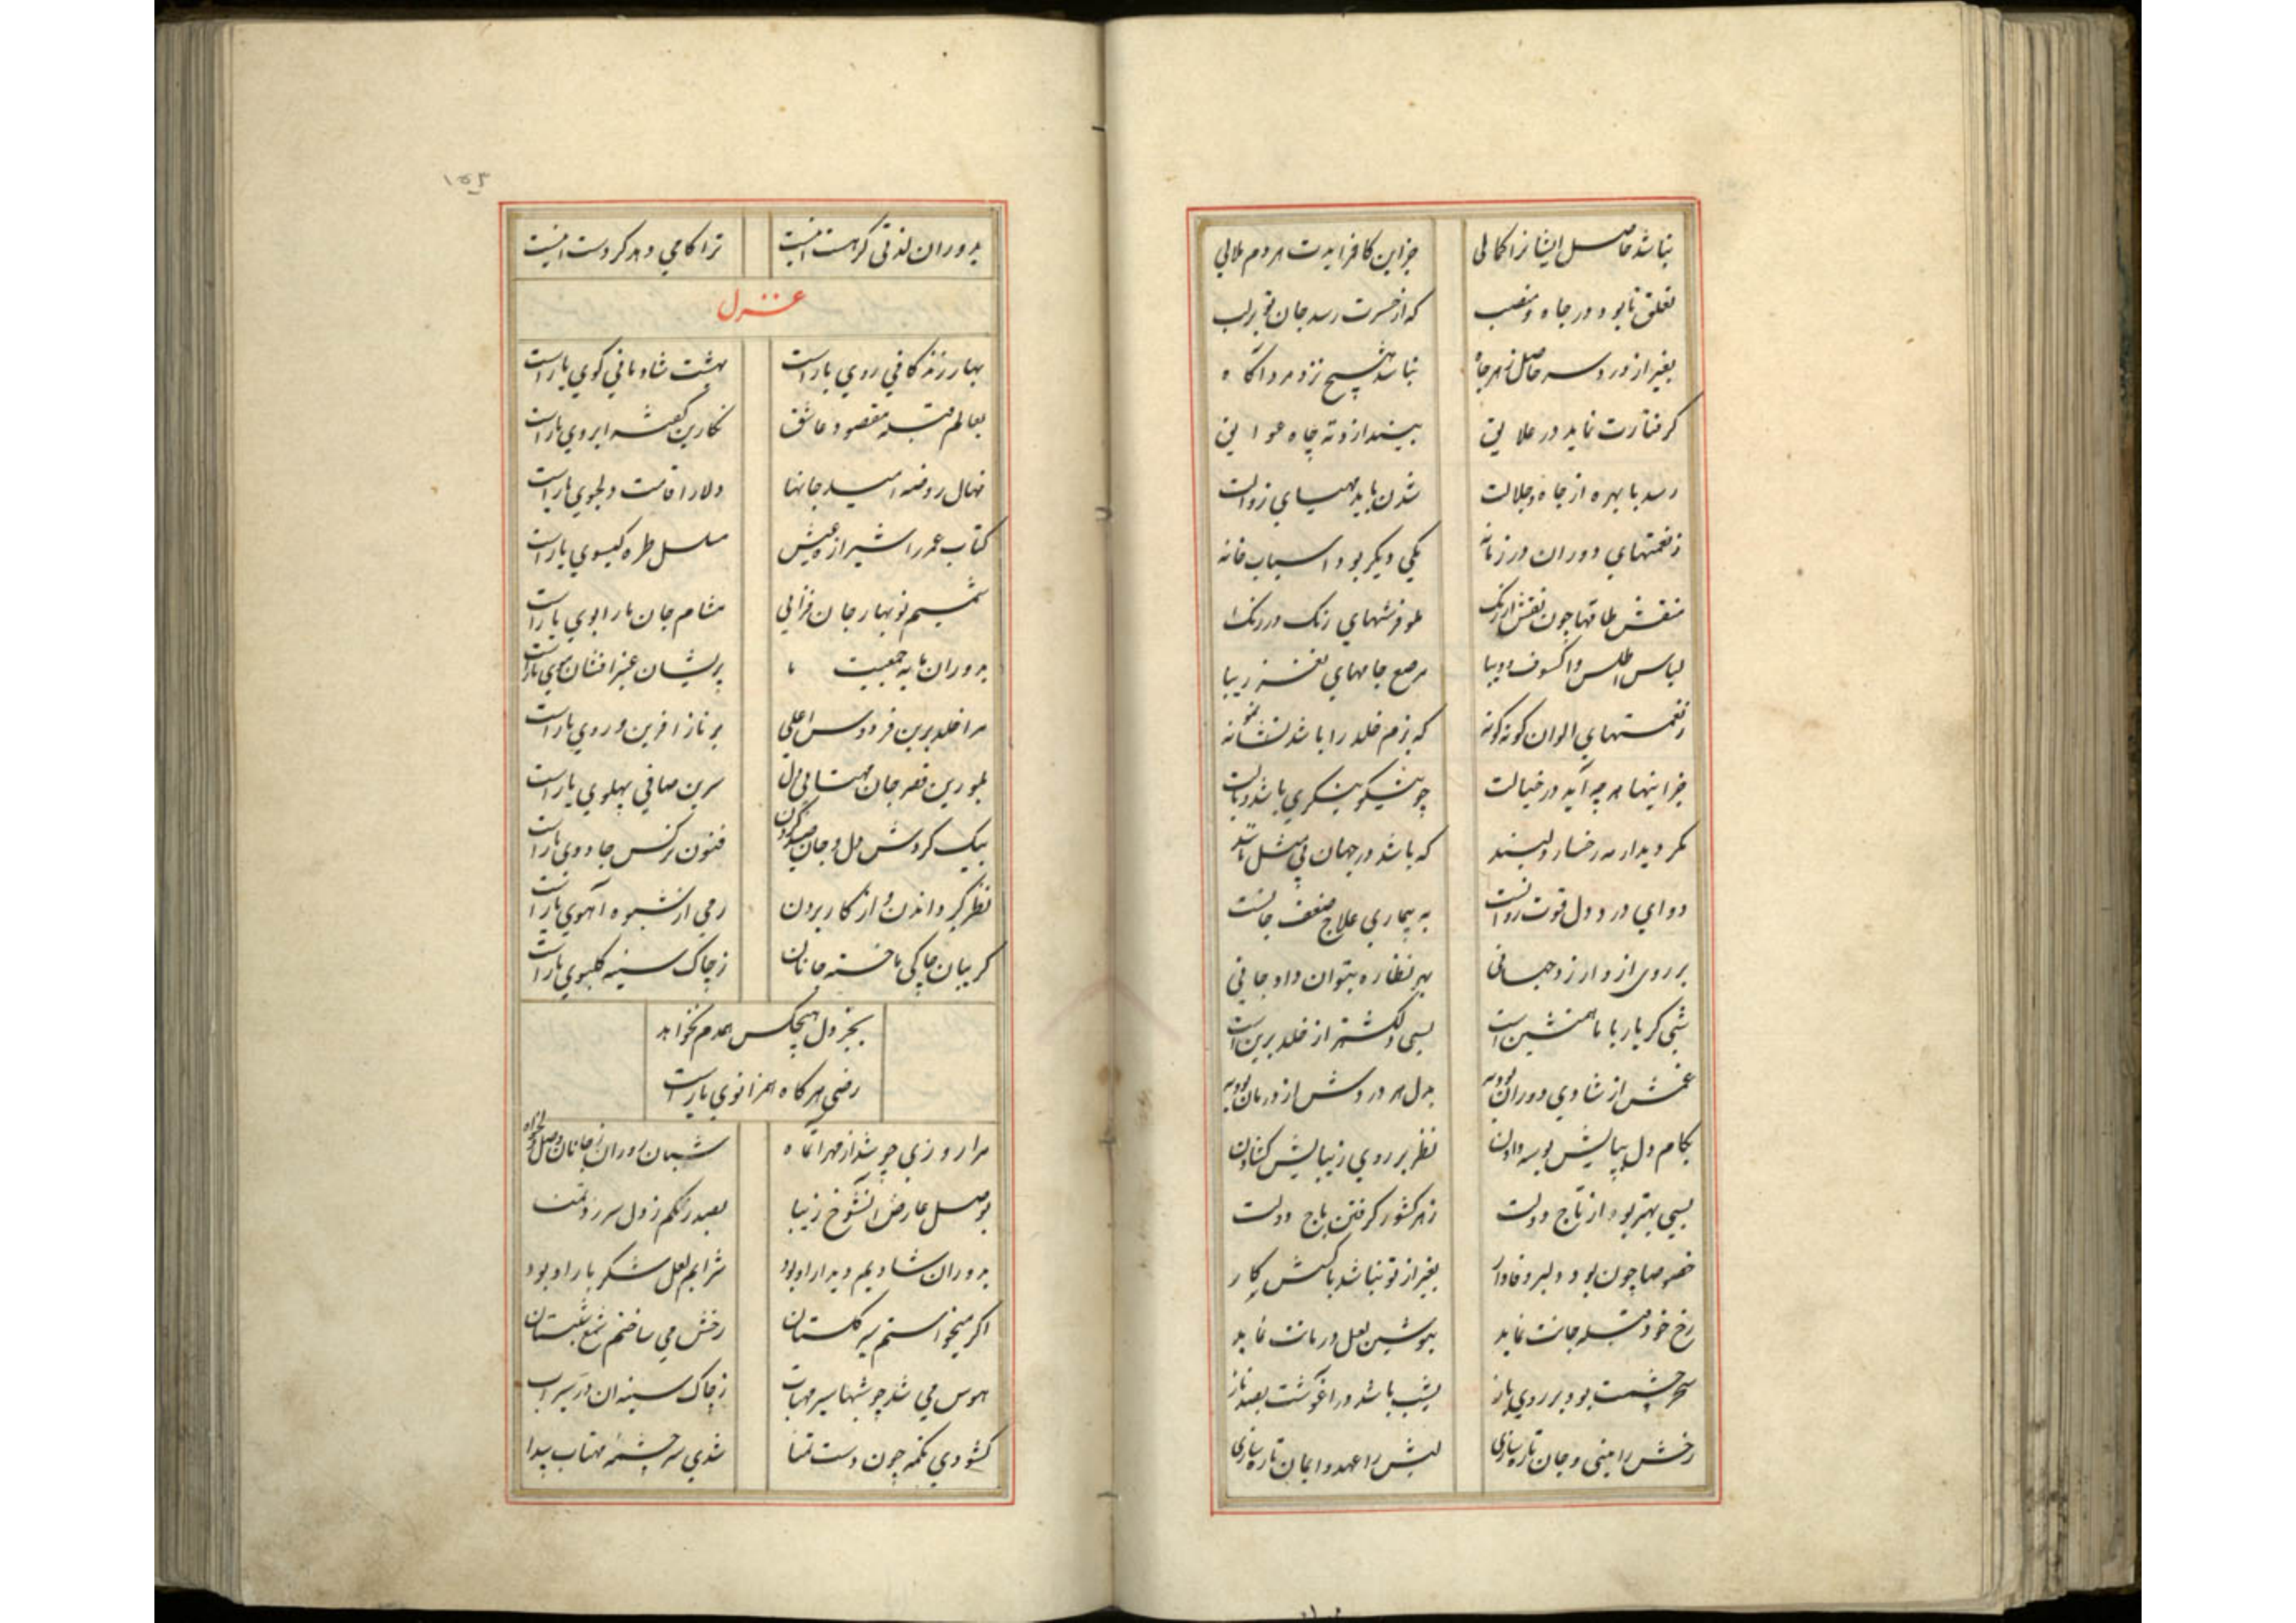 نباشد حاصل ایشانرا کمالی جز این کافزایدت هر دم ملالی
تعلق تا بود در جاه و منصب که از حسرت رسد جان تو بر لب
بغیر از درد سر حاصل ز هر جاه نباشد هیچ نزد مرد آگاه
کرفتارت نماید در علایق بیندازد ته چاه عوایق
رسد با بهره از جاه و جلالت شدن باید مهیای زوالت
ز نعمتهای دوران در زمانه یکی دیکر بود اسباب خانه
منقش طاقها چون نقش ارژنک ملو فرشهای رنک در رنک
لباس اطلس و اکسون و دیبا مرصع جامهای نغز زیبا
ز نعمتهای الوان کونه کونه که بزم خلد را باشد نمونه
جز اینها هر چه آید در خیالت چو نیکو بنکری باشد وبالت
مکر دیدار مه رخسار دلبند که باشد در جهان بی مثل و مانند
دوای درد دل قوت روانست به بیماری علاج ضعف جانست
بر روی او ارزد جهانی بهر نظاره بتوان داد جانی
شبی کر یار با ما همنشین است بسی دلکشتر از خلد برین است
غمش از شادی دوران بود به بدل هر دردش از درمان بود به
بکام دل بپایش بوسه دادن نظر بر روی زیبایش کشادن
بسی بهتر بود از تاج دولت ز هر کشور کرفتن باج دولت
خصوصا چون بود دلبر وفادار بغیر از تو نباشد با کسش کار
رخ خود قبله جانت نماید بنوشین لعل درمانت نماید
سحر چشمت بود بر روی او باز بشب باشد در آغوشت بصد ناز
رخش را بینی و جان تازه سازی لبش را عهد و ایمان تازه سازی
بدوران لذتی کر هست اینست ترا کامی دهد کر دست اینست
غزل
بهار زندکانی روی یار است بهشت شادمانی کوی یار است
بعالم قبله مقصود عاشق نکارین کعبه ابروی یار است
نهال روضه امید جانها دلارا قامت دلجوی یار است
کتاب عمر را شیرازه عیش مسلسل طره کیسوی یار است
شمیم نوبهار جان فزایی مشام جان ما را بوی یار است
بدوران مایه جمعیت ما پریشان عنبر افشان موی یار است
مرا خلد برین فردوس اعلی بر ناز آفرین و روی یار است
بلورین قصر جان مهتابی دل سرین صافی پهلوی یار است
بیک کردش دل و جان صید کردن فنون نرکس جادوی یار است
نظر کرداندن و از کار بردن رمی از شیوه آهوی یار است
کریبان چاکی ما خسته جانان ز چاک سینه کلبوی یار است
بجز دل هیچکس همدم نخواهد
رضی هر کاه همزانوی یار است
مرا روزی چو شد از مهر آنماه شبان دوران ز جانان وصل دلخواه
بوصل عارض آنشوخ زیبا بصد رنکم ز دل سر زد تمنا
بدوران شادیم دیدار او بود شرابم لعل شکر بار او بود
اکر میخواستم سیر کلستان رخش می ساختم شمع شبستان
هوس می شد چو شبها سیر مهتاب ز چاک سینه آن در سیراب
کشودی تکمه چون دست تمنا شدی سرچشمه مهتاب پیدا